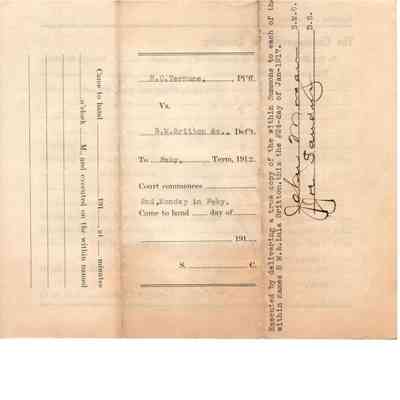 Came to hand 191 at minutes
o'clock M., and executed on the within named
R.C.Ternune, Pl'ff.
Vs.
B.M.Britton &c., Def't.
To Feby. Term, 1912.
Court commences
2nd, Monday in Feby.
Came to hand day of
191
S. C.
Executed by delivering a true copy of the within Summons to each of the
within names B M. & Inis Britton, this the day of Jan-1917.
John
S.M.C.
D.S.